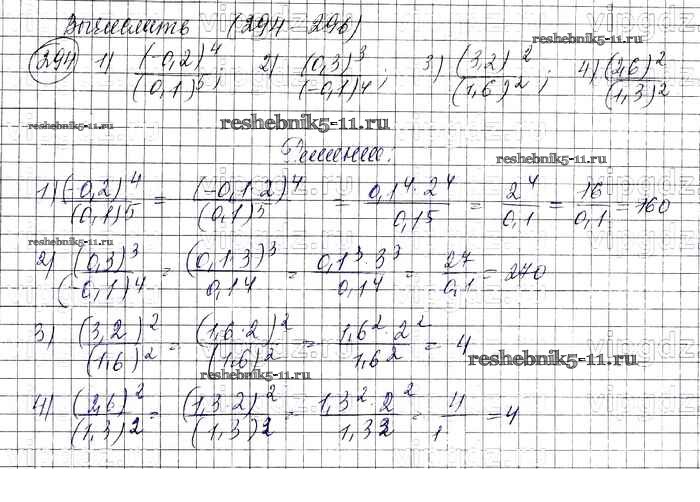 Вычислить (294-296)
reshebnik5-11.ru
294 1) (-0,2)^4/(0,1)^5; 2) (0,3)^3/(-0,1)^4; 3) (3,2)^2/(1,6)^2; 4) (2,6)^2/(1,3)^2
reshebnik5-11.ru
reshebnik5-11.ru
Решение:
reshebnik5-11.ru
1) (-0,2)^4/(0,1)^5 = (-0,1·2)^4/(0,1)^5 = 0,1^4·2^4/0,1^5 = 2^4/0,1 = 16/0,1 = 160
reshebnik5-11.ru
2) (0,3)^3/(-0,1)^4 = (0,1·3)^3/0,1^4 = 0,1^3·3^3/0,1^4 = 27/0,1 = 270
3) (3,2)^2/(1,6)^2 = (1,6·2)^2/(1,6)^2 = 1,6^2·2^2/1,6^2 = 4
reshebnik5-11.ru
reshebnik5-11.ru
4) (2,6)^2/(1,3)^2 = (1,3·2)^2/(1,3)^2 = 1,3^2·2^2/1,3^2 = 4/1 = 4